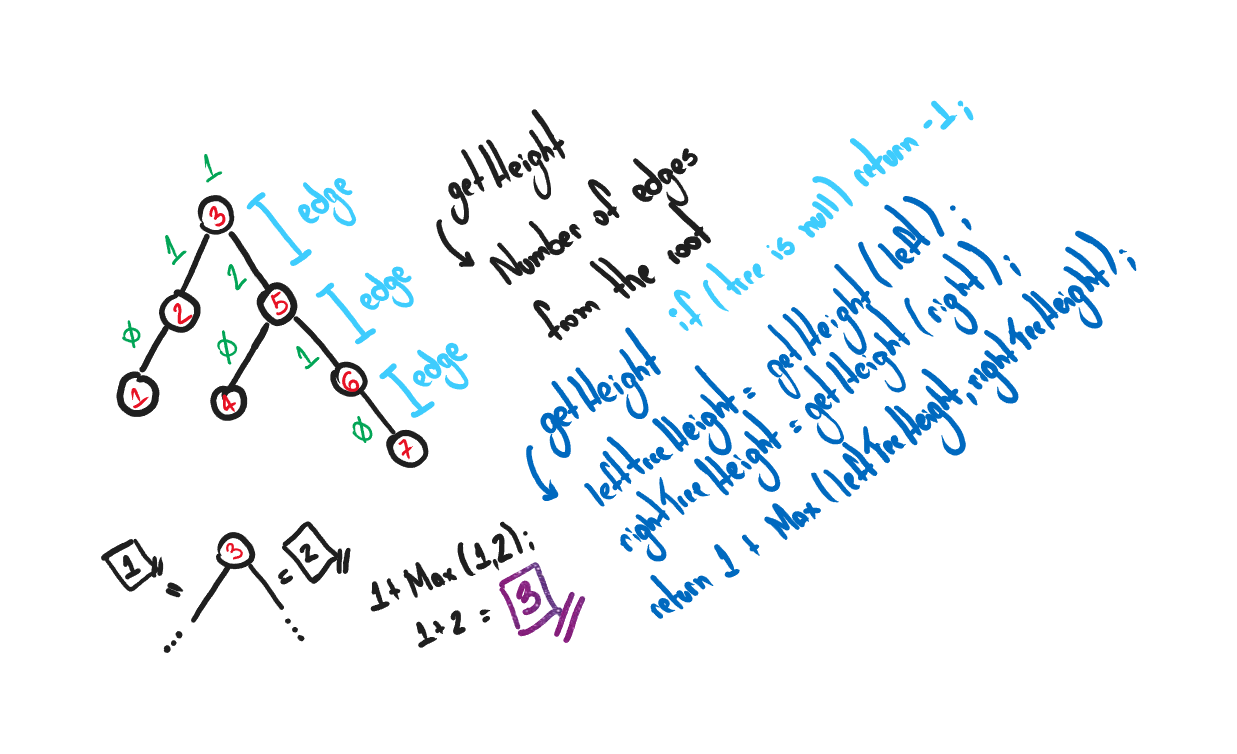 1
3
edge
1
2
2
5
edge
ϕ
ϕ
1
1
4
6
edge
ϕ
7
getHeight
Number of edges
from the root
if (tree is null) return -1;
getHeight
leftTreeHeight = getHeight (left);
rightTreeHeight = getHeight (right);
return 1 + Max (leftTreeHeight, rightTreeHeight);
1 =
3
= 2
1+Max (1,2);
1+2 = 3